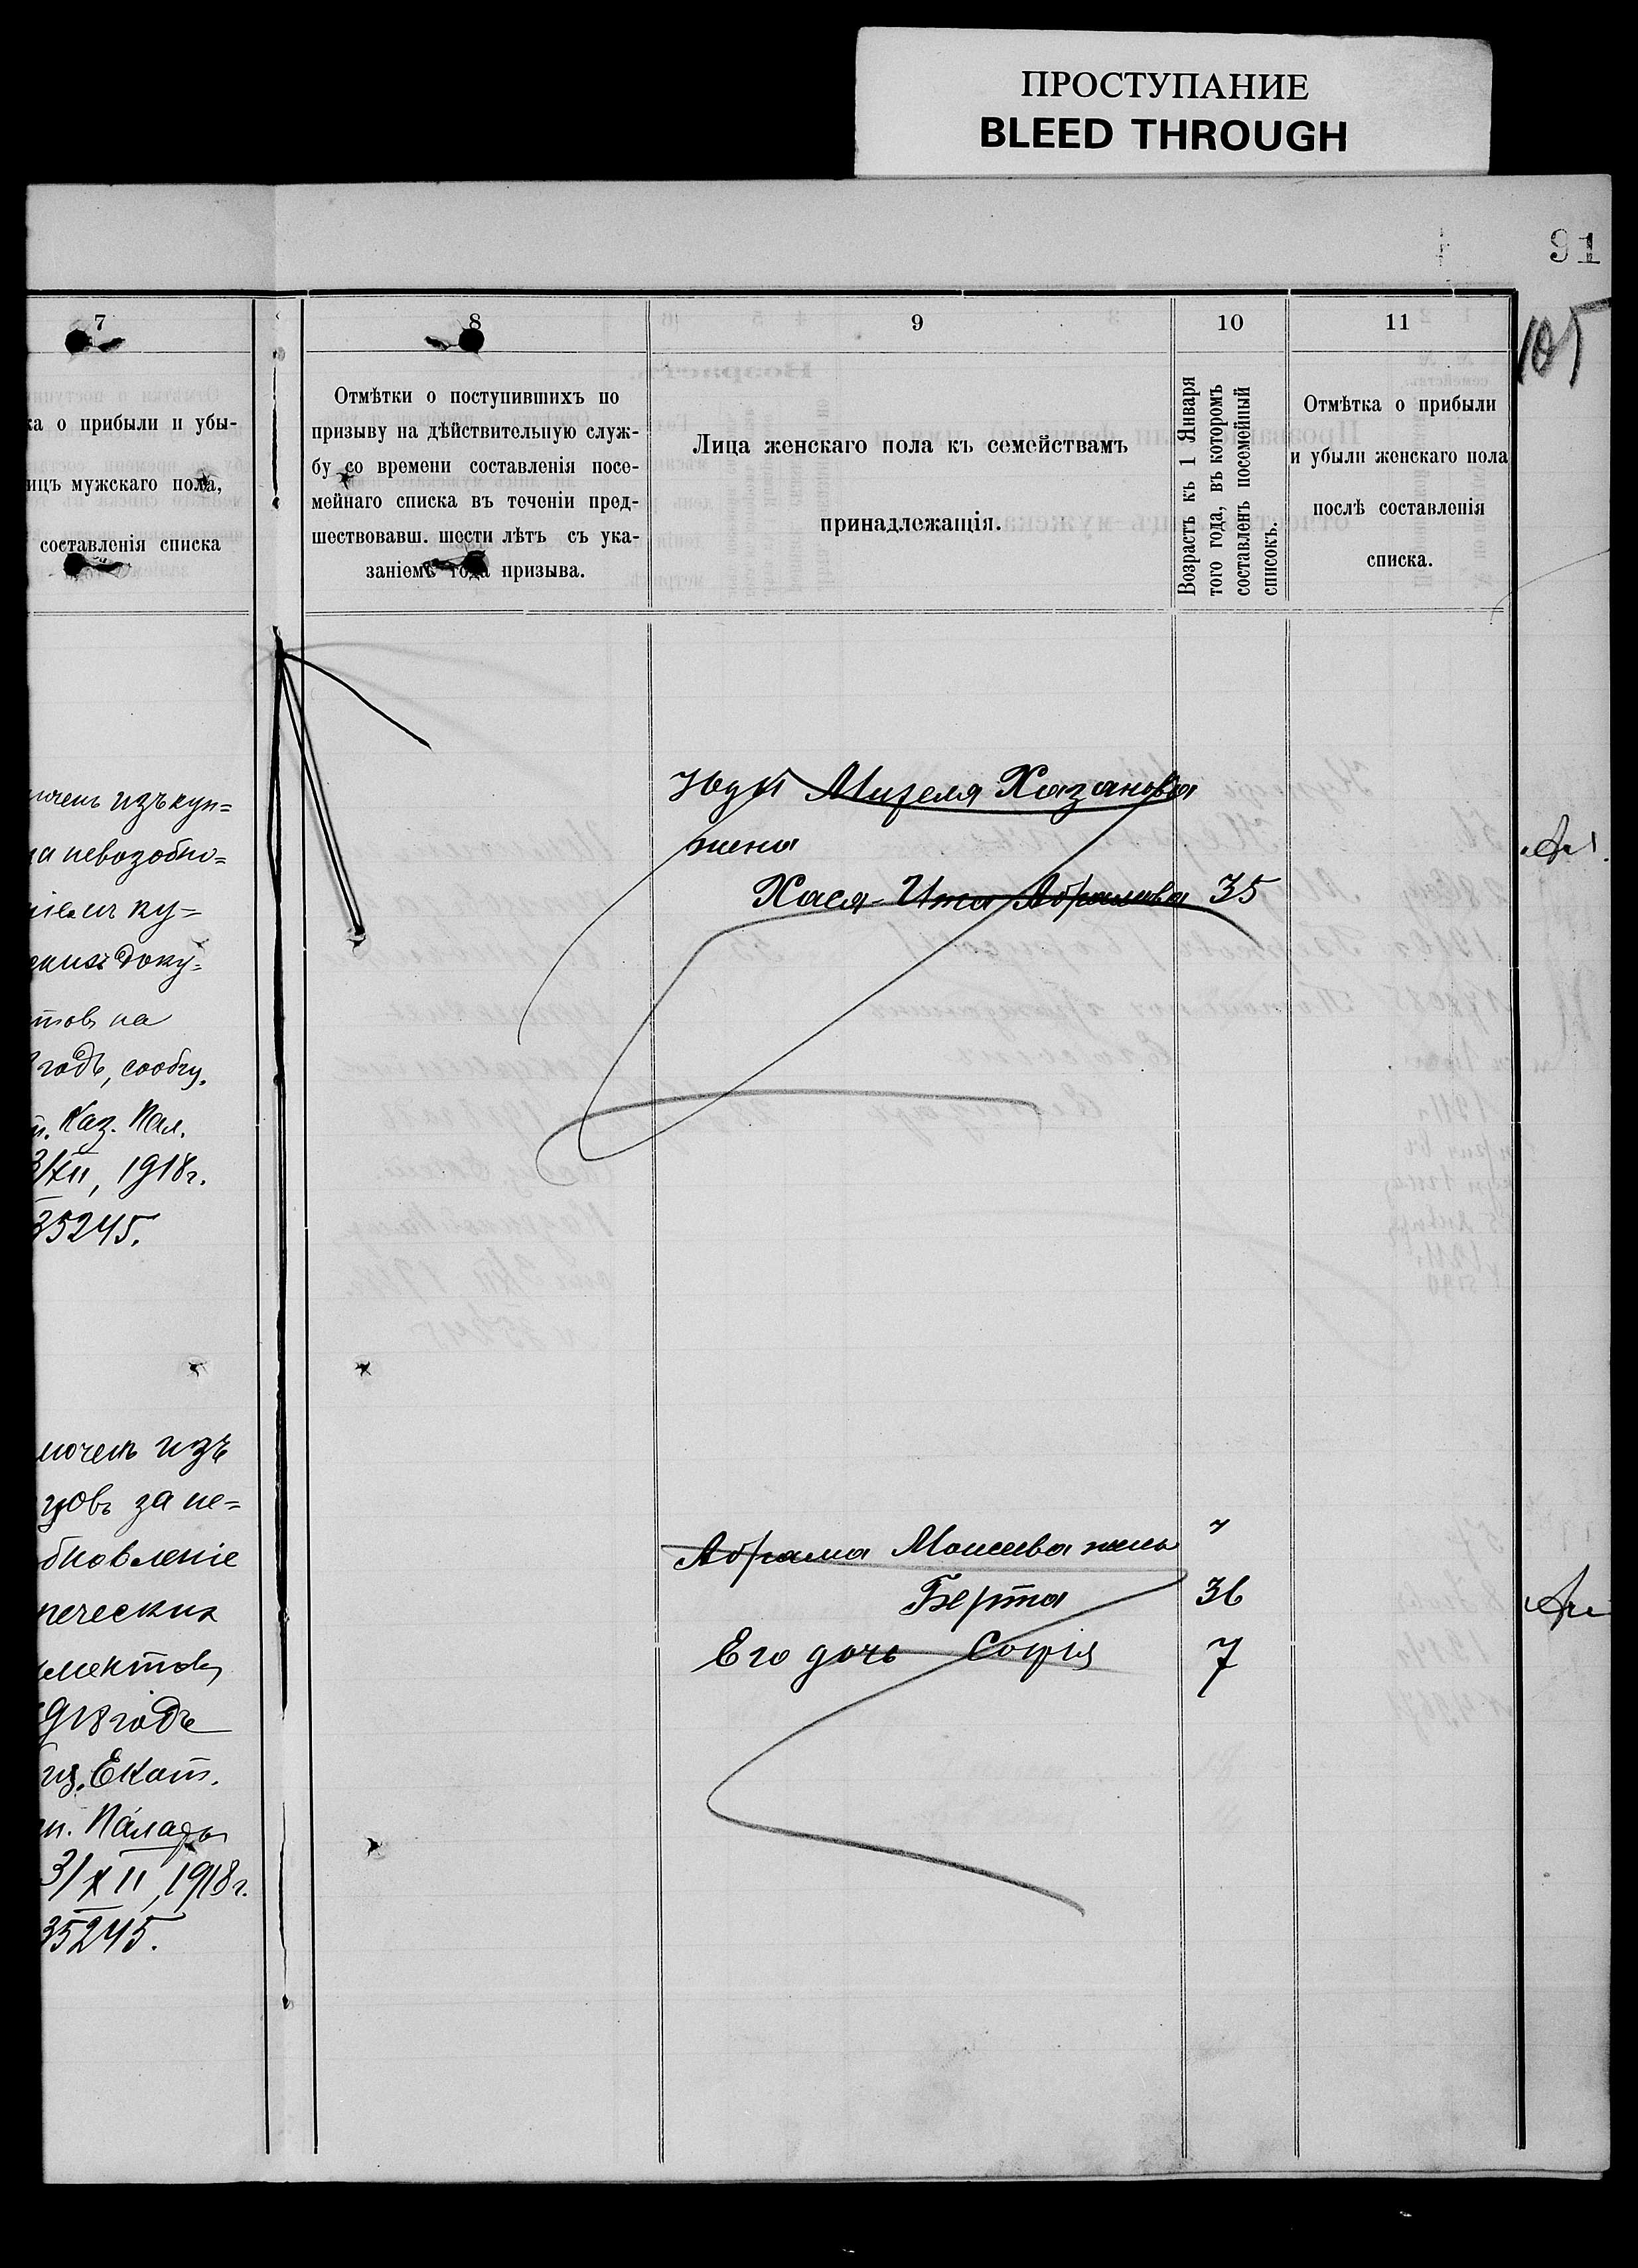 ПРОСТУПАНИЕ
BLEED THROUGH
91
105
7
8
9
10
11
ка о прибыли и убы-
ицъ мужскаго пола,
составленія списка
Отмѣтки о поступившихъ по
призыву на дѣйствительную служ-
бу со времени составленія посе-
мейнаго списка въ теченіи пред-
шествовавш. шести лѣтъ съ ука-
заніемъ года призыва.
Лица женскаго пола къ семействамъ
принадлежащія.
Возрастъ къ 1 Января
того года, въ которомъ
составленъ посемейный
списокъ.
Отмѣтка о прибыли
и убыли женскаго пола
послѣ составленія
списка.
юченъ изъ куп=
за невозобно=
ніемъ ку=
скихъ доку=
товъ на
годъ, сообщ.
п. Каз. Пал.
3/XII, 1918г.
35245.
Юди Миреля Хазанова
жена
Хася-Ита Абрамова 35
юченъ изъ
цовъ за не=
бновленіе
ческих
ментовъ
918 годъ
Екат.
п. Палаты
3/XII, 1918г.
35245.
Абрама Моисеева жена
Берта 36
Его дочь Софія 7